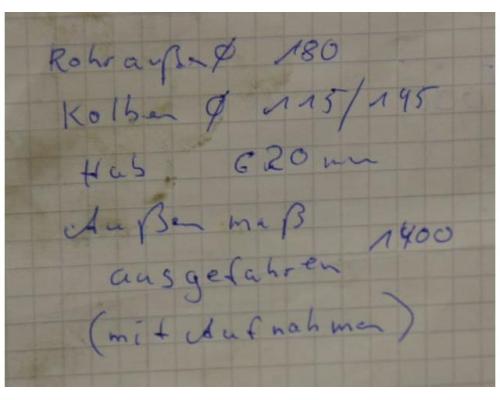 Rohraußen Ø 180
Kolben Ø 115/145
Hub 620 mm
Außenmaß
ausgefahren 1400
(mit Aufnahmen)